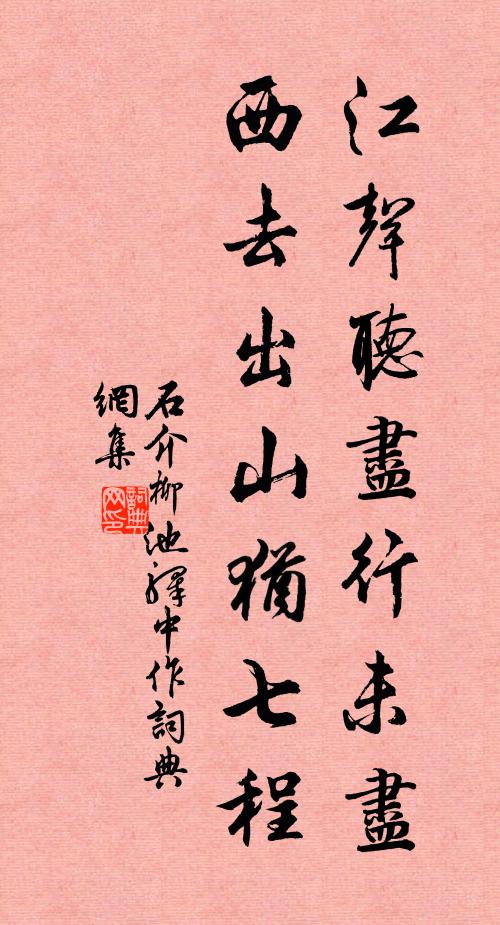 江聲聽盡行未盡
西去出山猶七程
石介柳池驛中作詞典
網集
詞典网印